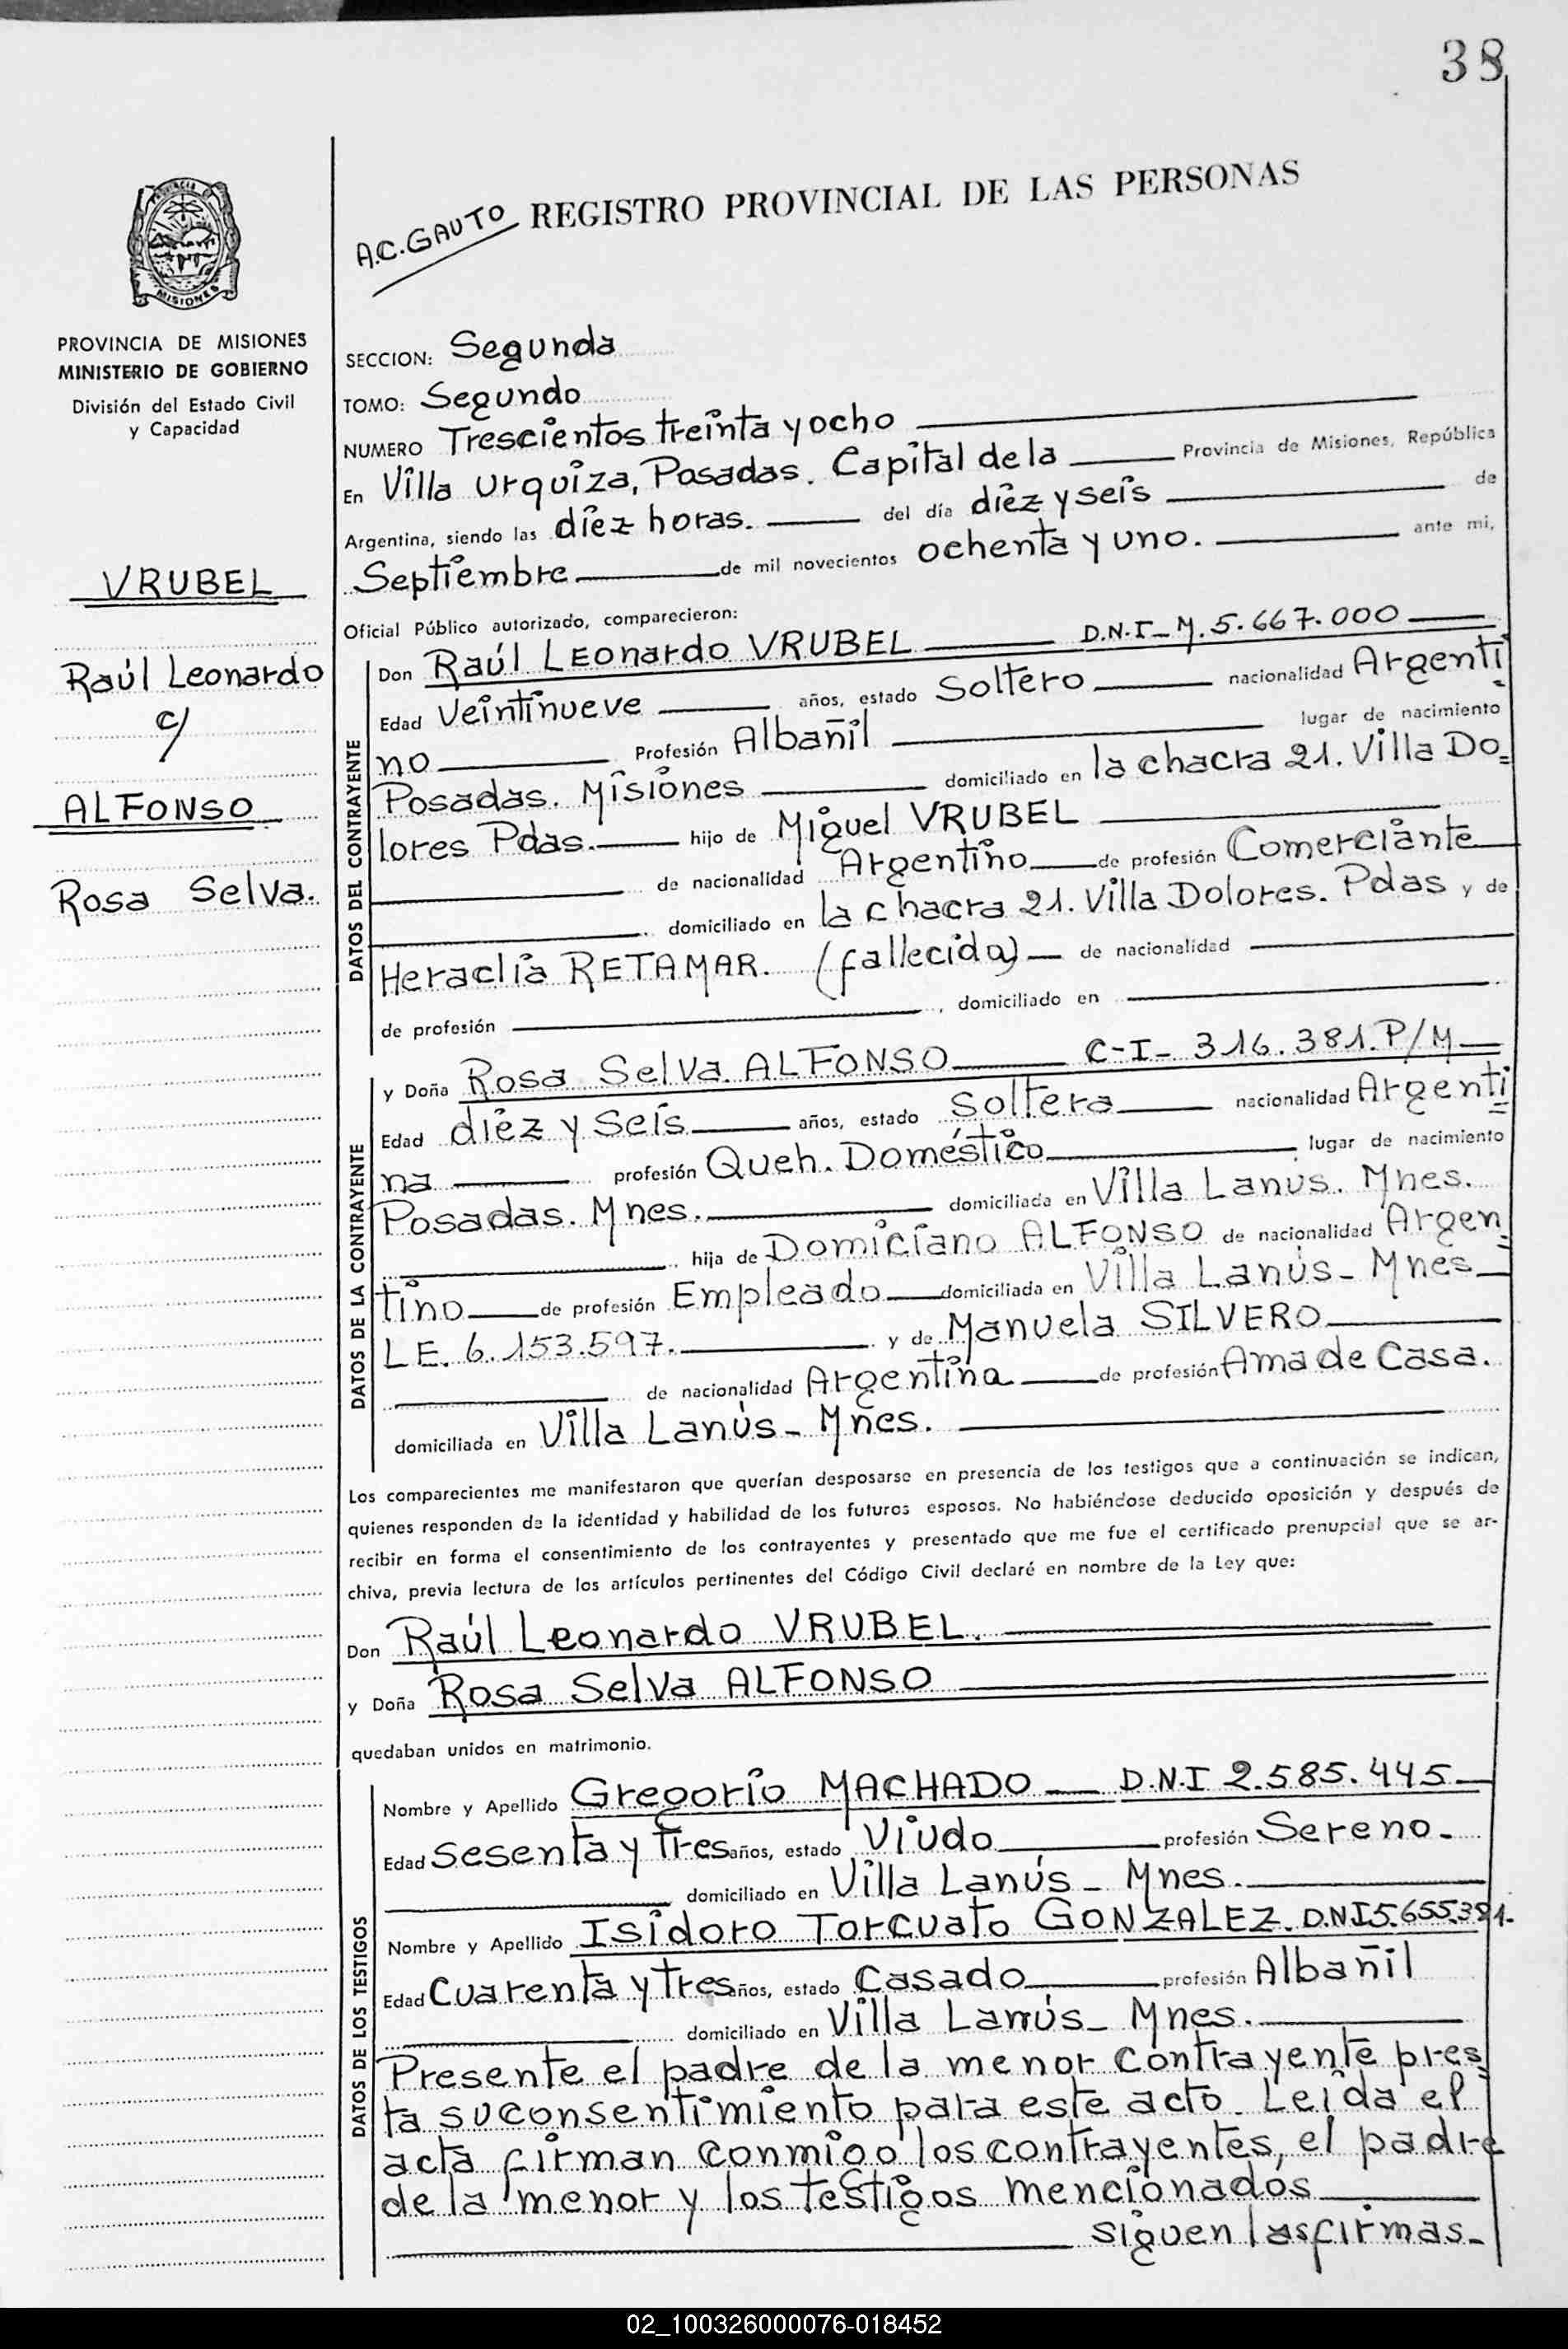 38
A.C. GAUTO REGISTRO PROVINCIAL DE LAS PERSONAS
MISIONES
PROVINCIA DE MISIONES
MINISTERIO DE GOBIERNO
División del Estado Civil
y Capacidad
VRUBEL
Raúl Leonardo
c/
ALFONSO
Rosa Selva.
SECCION: Segunda
TOMO: Segundo
NUMERO Trescientos treinta y ocho
En Villa Urquiza, Posadas. Capital de la Provincia de Misiones, República
Argentina, siendo las diez horas. del día diez y seis de
Septiembre de mil novecientos ochenta y uno. ante mi,
Oficial Público autorizado, comparecieron:
DATOS DEL CONTRAYENTE
Don Raúl Leonardo VRUBEL D.N.I_ M. 5.667.000
Edad Veintinueve años, estado Soltero nacionalidad Argenti
no Profesión Albañil lugar de nacimiento
Posadas. Misiones domiciliado en la chacra 21. Villa Do=
lores Pdas. hijo de Miguel VRUBEL
de nacionalidad Argentino de profesión Comerciante
domiciliado en la chacra 21. Villa Dolores. Pdas y de
Heraclia RETAMAR. (fallecida) de nacionalidad
de profesión , domiciliado en
DATOS DE LA CONTRAYENTE
y Doña Rosa Selva ALFONSO C-I- 316.381. P/M
Edad diez y seis años, estado Soltera nacionalidad Argenti=
na profesión Queh. Doméstico lugar de nacimiento
Posadas. Mnes. domiciliada en Villa Lanús. Mnes.
hija de Domiciano ALFONSO de nacionalidad Argen=
tino de profesión Empleado domiciliada en Villa Lanús_ Mnes
L.E. 6.153.597. y de Manuela SILVERO
de nacionalidad Argentina de profesión Ama de Casa.
domiciliada en Villa Lanús_ Mnes.
Los comparecientes me manifestaron que querían desposarse en presencia de los testigos que a continuación se indican,
quienes responden de la identidad y habilidad de los futuros esposos. No habiéndose deducido oposición y después de
recibir en forma el consentimiento de los contrayentes y presentado que me fue el certificado prenupcial que se ar-
chiva, previa lectura de los artículos pertinentes del Código Civil declaré en nombre de la Ley que:
Don Raúl Leonardo VRUBEL.
y Doña Rosa Selva ALFONSO
quedaban unidos en matrimonio.
DATOS DE LOS TESTIGOS
Nombre y Apellido Gregorio MACHADO D.N.I 2.585.445
Edad Sesenta y Tres años, estado Viudo profesión Sereno.
domiciliado en Villa Lanús_ Mnes.
Nombre y Apellido Isidoro Torcuato GONZALEZ. D.N.I 5.655.391.
Edad Cuarenta y Tres años, estado Casado profesión Albañil
domiciliado en Villa Lanús_ Mnes.
Presente el padre de la menor contrayente pres
ta su consentimiento para este acto. Leida el
acta firman conmigo los contrayentes, el padre
de la menor y los testigos mencionados
siguen las firmas_
02_100326000076-018452